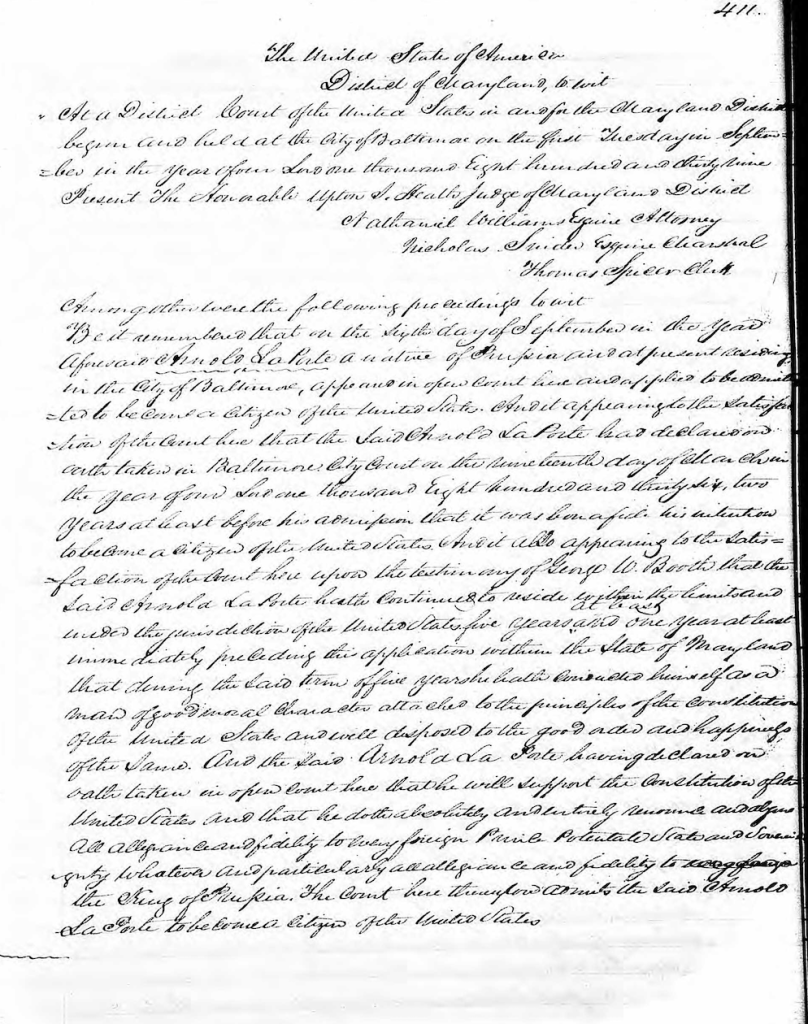 411.
The United State of America
District of Maryland, to wit
At a District Court of the United States in and for the Maryland District
begun and held at the City of Baltimore on the first Tuesday in Septem=
=ber in the Year of our Lord one thousand Eight hundred and thirty nine
Present The Honorable Upton S. Heath Judge of Maryland District
Nathaniel Williams Esquire Attorney
Nicholas Snider Esquire Marshal
Thomas Spicer Clerk
Among other were the following proceedings to wit
Be it remembered that on the sixth day of September in the Year
aforesaid Arnold La Porte a native of Prussia and at present residing
in the City of Baltimore, appeared in open Court here and applied to be admit
=ted to become a Citizen of the United State. And it appearing to the satisfac
=tion of the Court here that the said Arnold La Porte had declared on
oath taken in Baltimore City Court on the nineteenth day of March in
the Year of our Lord one thousand Eight hundred and thirty six, two
Years at least before his admission that it was bona fide his intention
to become a Citizen of the United States. And it also appearing to the satis=
=faction of the Court here upon the testimony of George W. Booth that the
said Arnold La Porte hath Continued to reside within the limits and
under the jurisdiction of the United States five Years at least and one Year at least
immediately preceding this application within the State of Maryland
that during the said term of five years he hath conducted himself as a
man of good moral Character attached to the principles of the Constitution
of the United State and well disposed to the good order and happiness
of the same. And the said Arnold La Porte having declared on
oath taken in open Court here that he will support the Constitution of the
United States and that he doth absolutely and entirely renounce and abjure
all allegiance and fidelity to every foreign Prince Potentate State and Soverei
gnty whatever and particularly all allegiance and fidelity to
the King of Prussia. The Court here therefore admits the said Arnold
La Porte to become a Citizen of the United States